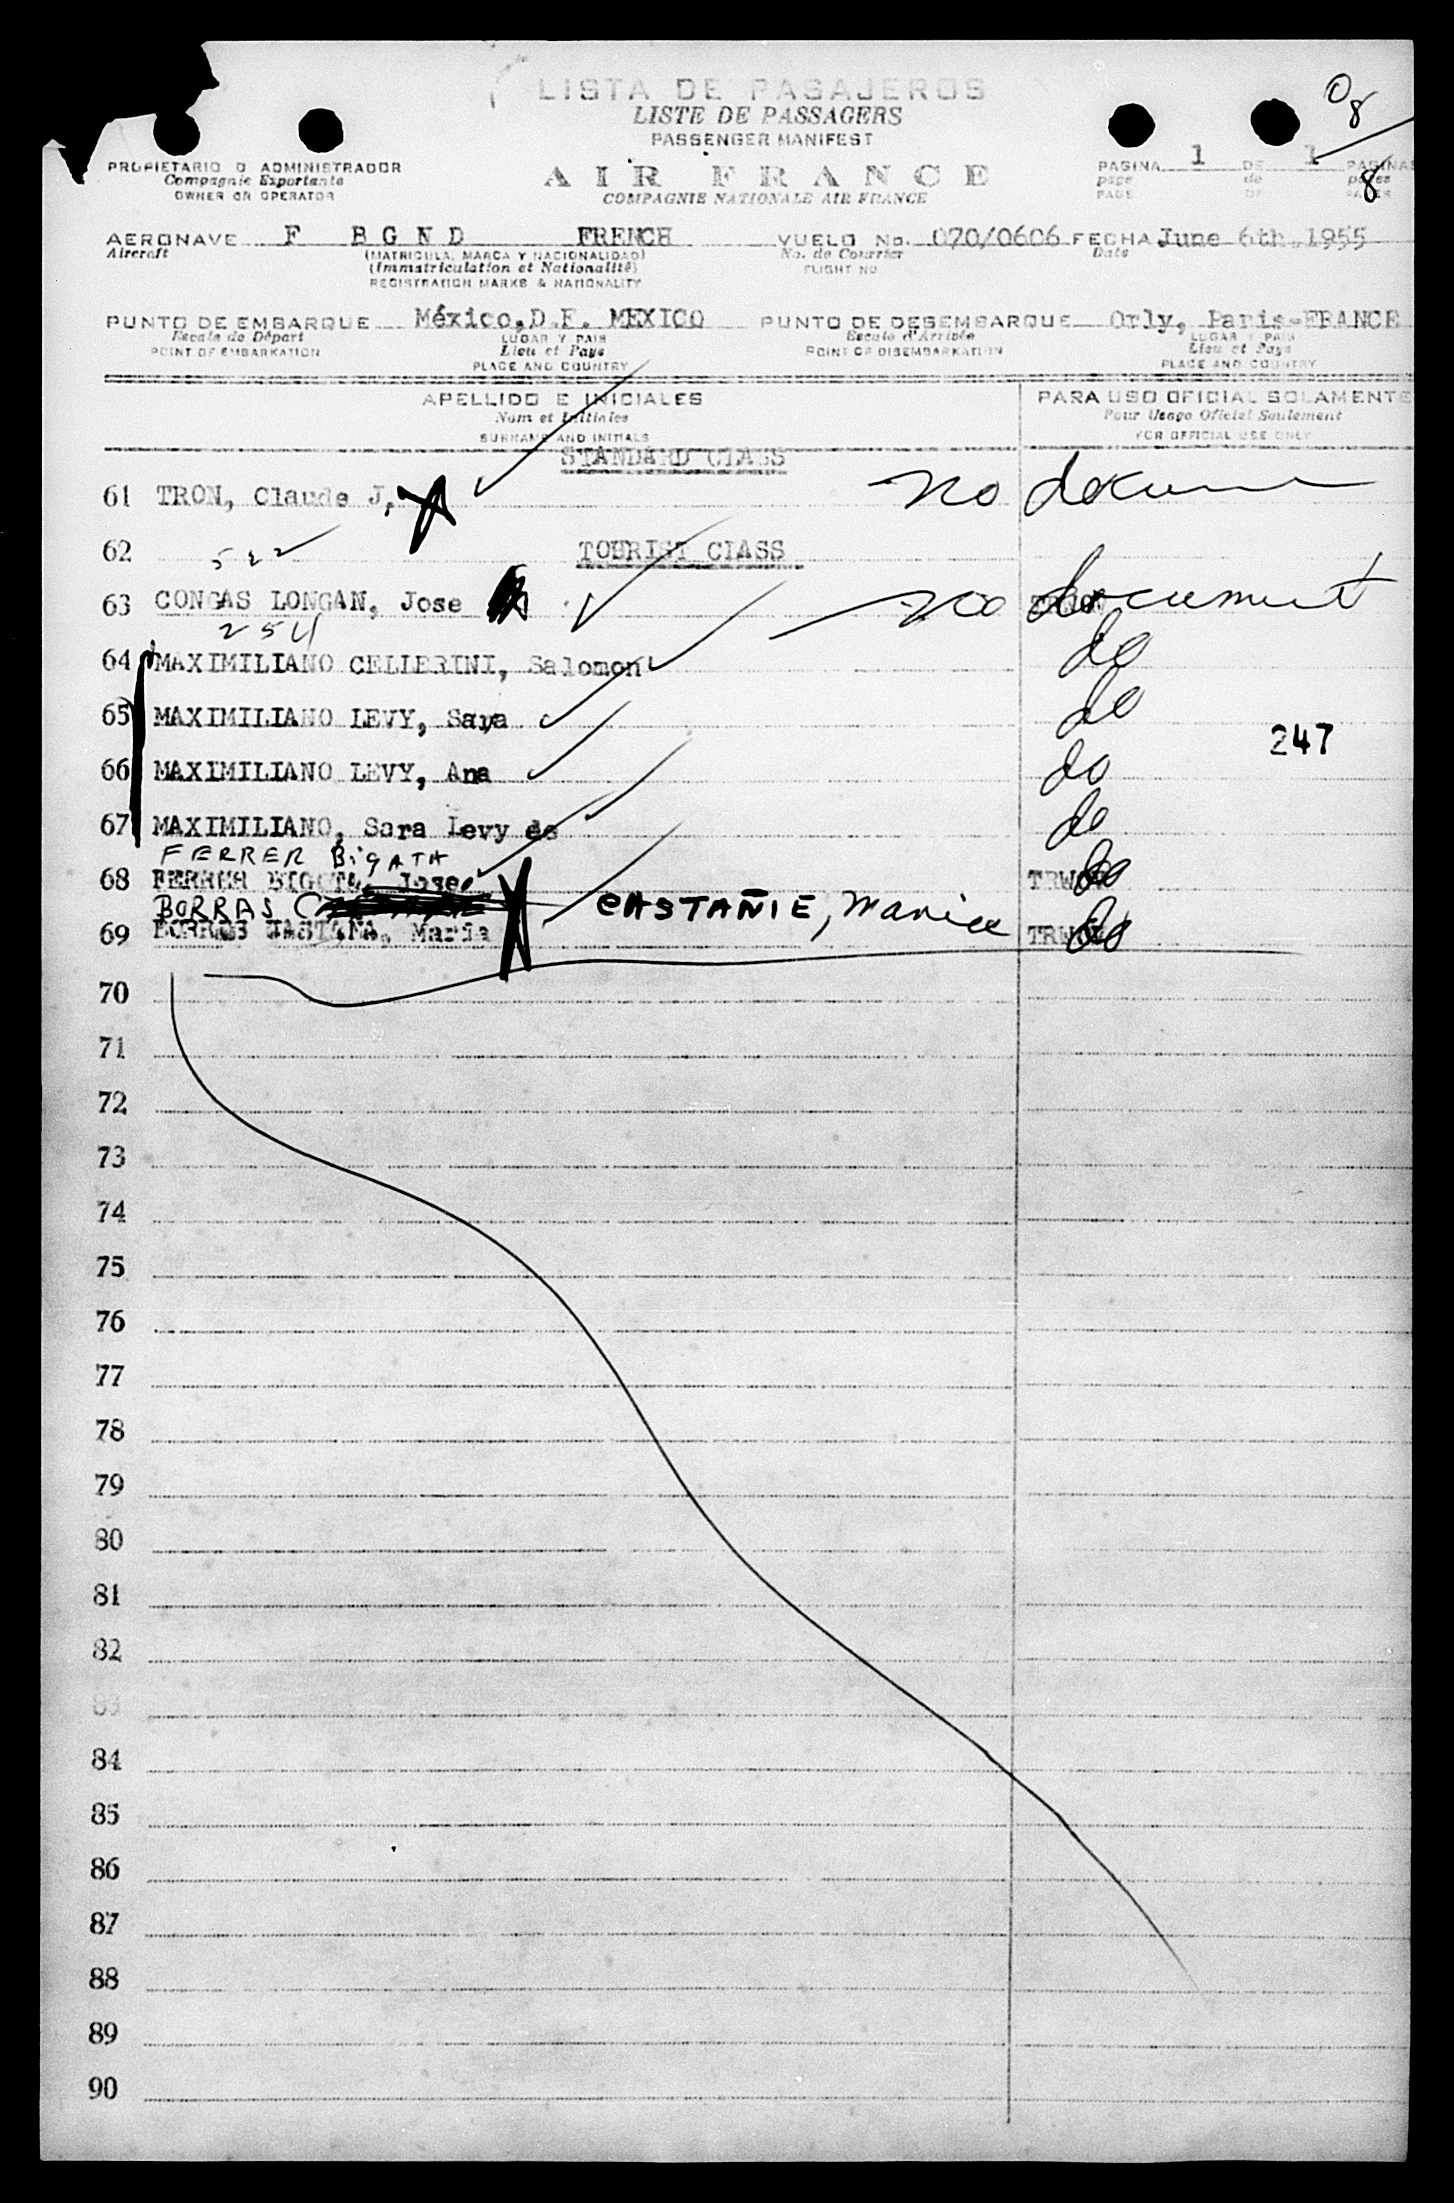 LISTA DE PASAJEROS
LISTE DE PASSAGERS
PASSENGER MANIFEST
08
8
PROPIETARIO O ADMINISTRADOR
Compagnie Exportante
OWNER OR OPERATOR
AIR FRANCE
COMPAGNIE NATIONALE AIR FRANCE
PAGINA 1 DE 1 PAGINAS
page de pages
PAGE OF PAGES
AERONAVE F BGND FRENCH VUELO No. 070/0606 FECHA June 6th, 1955
Aircraft (MATRICULA, MARCA Y NACIONALIDAD) No. de Courrier Date
(Immatriculation et Nationalité) FLIGHT NO
REGISTRATION MARKS & NATIONALITY
PUNTO DE EMBARQUE México,D.F. MEXICO PUNTO DE DESEMBARQUE Orly, Paris-FRANCE
Escale de Départ LUGAR Y PAIS Escale d'Arrivée LUGAR Y PAIS
POINT OF EMBARKATION Lieu et Pays POINT OF DISEMBARKATION Lieu et Pays
PLACE AND COUNTRY PLACE AND COUNTRY
APELLIDO E INICIALES PARA USO OFICIAL SOLAMENTE
Nom et Initiales Pour Usage Officiel Seulement
SURNAME AND INITIALS FOR OFFICIAL USE ONLY
STANDARD CLASS
61 TRON, Claude J. no docum
62 522 TOURIST CLASS
63 CONGAS LONGAN, Jose no document
254
64 MAXIMILIANO CELLERINI, Salomon do
65 MAXIMILIANO LEVY, Sara do
247
66 MAXIMILIANO LEVY, Ana do
67 MAXIMILIANO, Sara Levy de do
FERRER BIGATA
68 FERRER BIGOTA, Jose do
BORRAS CASTAÑIE, Maria
69 BORROS CASTANA, Maria do
70
71
72
73
74
75
76
77
78
79
80
81
82
83
84
85
86
87
88
89
90